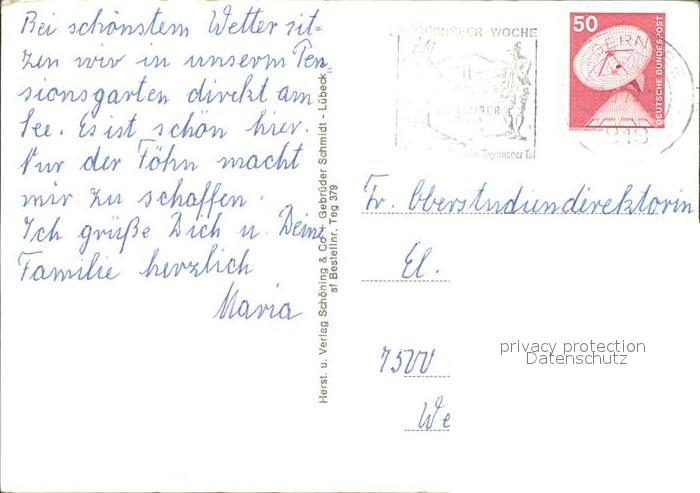 Bei schönstem Wetter sit=
zen wir in unserm Pen=
sionsgarten direkt am
See. Es ist schön hier.
Nur der Föhn macht
mir zu schaffen.
Ich grüße Dich u. Deine
Familie herzlich
Maria
Herst. u. Verlag Schöning & Co + Gebrüder Schmidt - Lübeck
sf Bestellnr. Teg 379
WOCHE
Tegernseer Tal
50
DEUTSCHE BUNDESPOST
Fr. Oberstudiendirektorin
El.
7500
We
privacy protection
Datenschutz